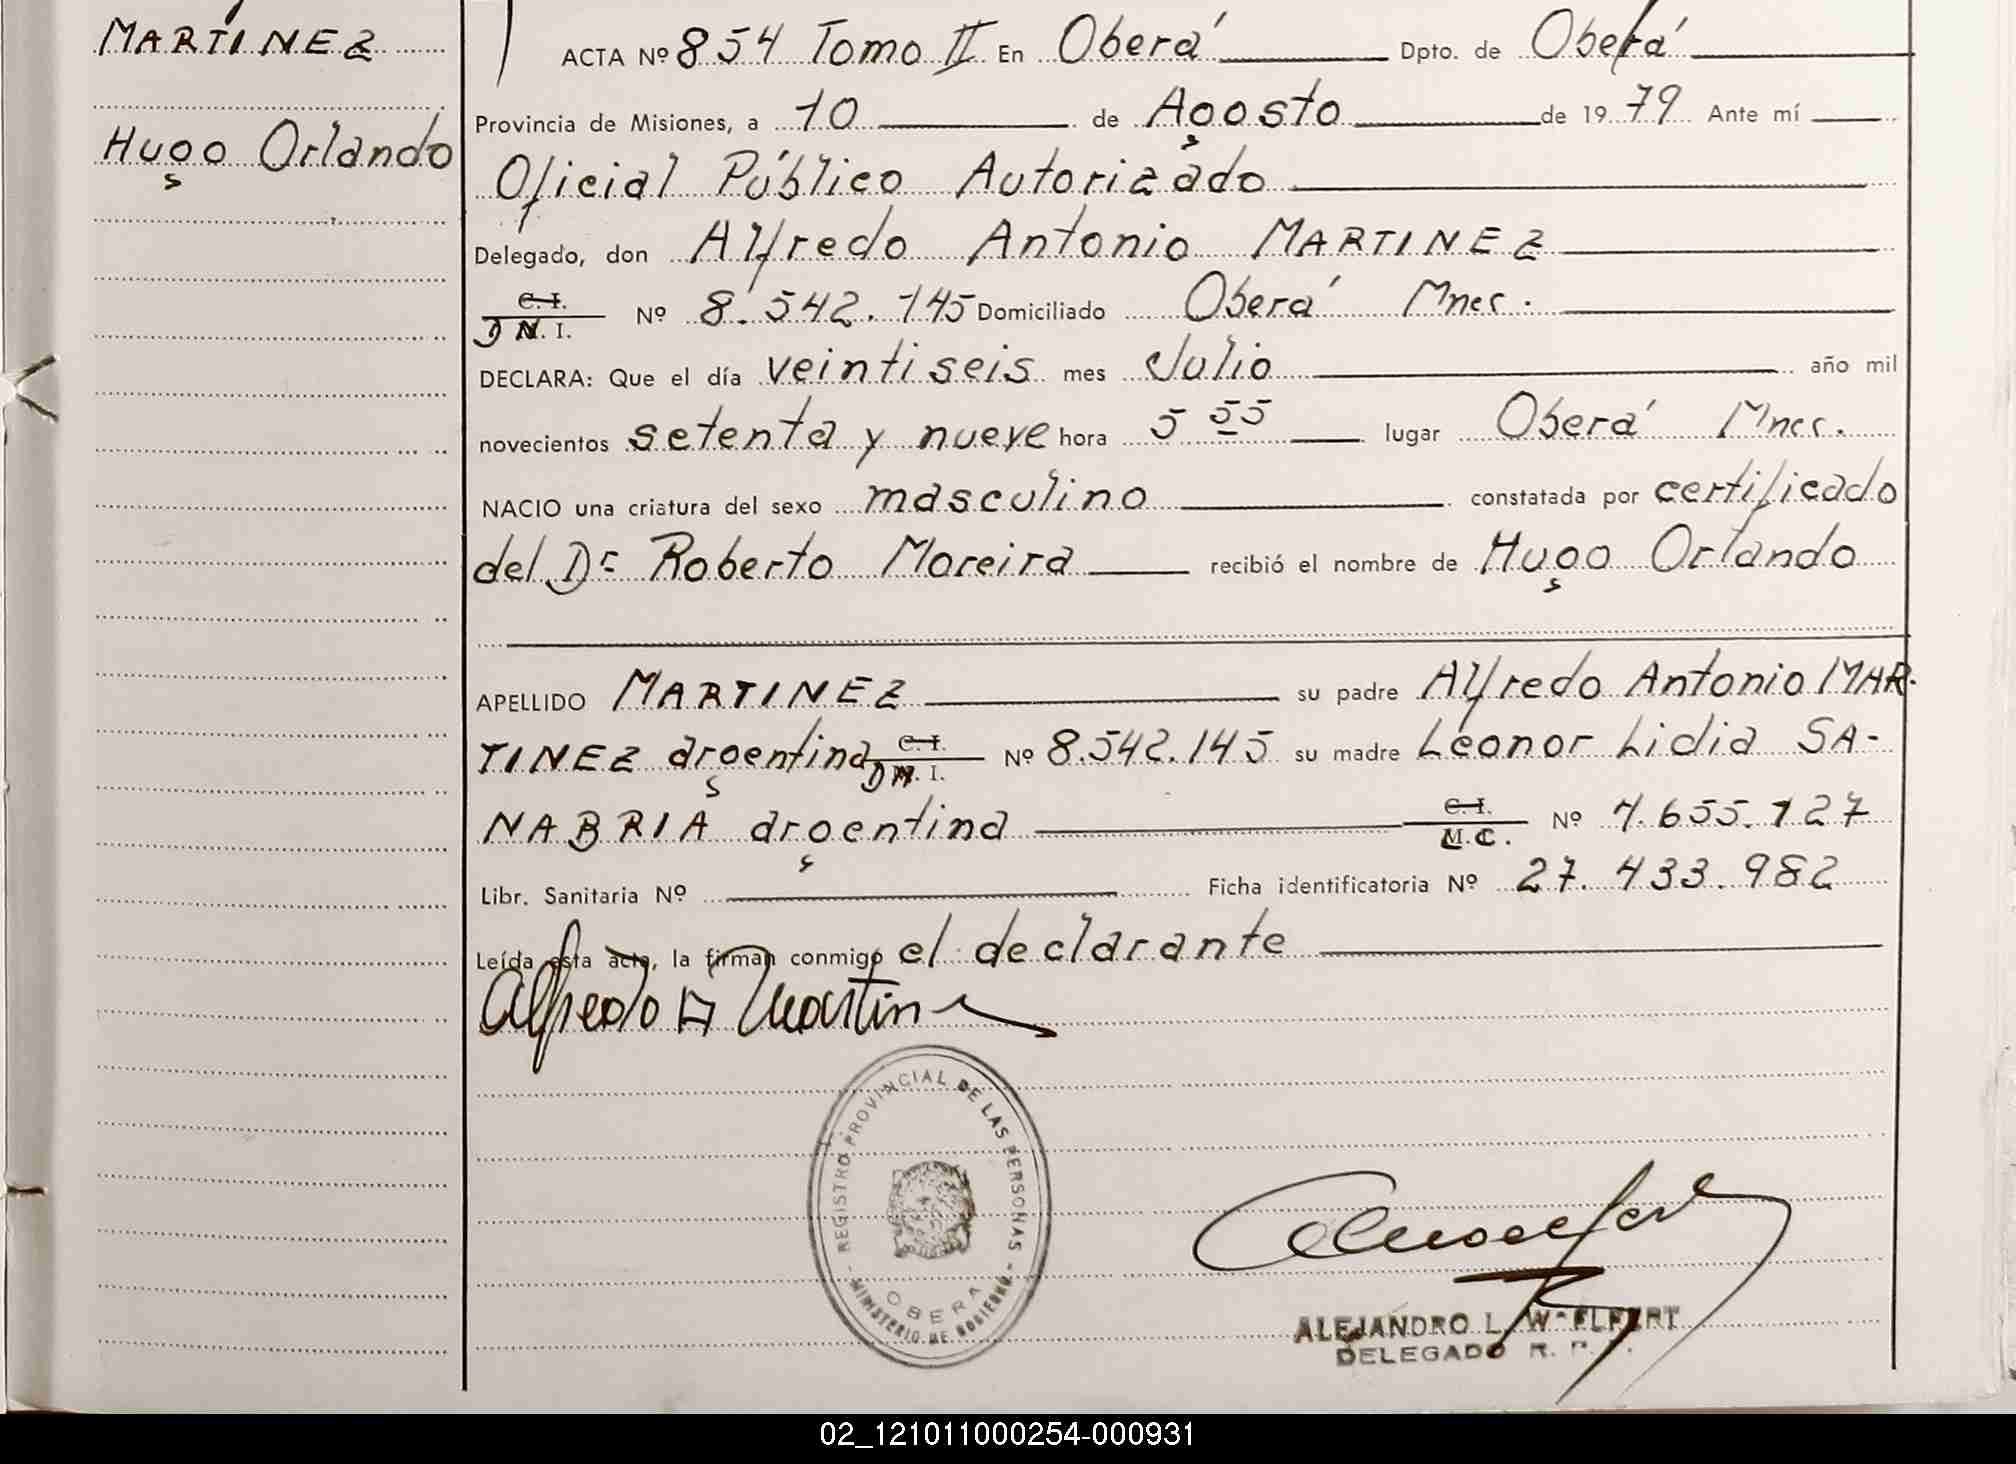 MARTINEZ
Hugo Orlando
ACTA Nº 854 Tomo II En Oberá Dpto. de Oberá
Provincia de Misiones, a 10 de Agosto de 1979 Ante mí
Oficial Público Autorizado
Delegado, don Alfredo Antonio MARTINEZ
C. I.
D N. I. Nº 8.542.145 Domiciliado Oberá Mnes.
DECLARA: Que el día veintiseis mes Julio año mil
novecientos setenta y nueve hora 5 55 lugar Oberá Mnes.
NACIO una criatura del sexo masculino constatada por certificado
del Dr Roberto Moreira recibió el nombre de Hugo Orlando
APELLIDO MARTINEZ su padre Alfredo Antonio MAR-
TINEZ argentina C. I. D N. I. Nº 8.542.145 su madre Leonor Lidia SA-
NABRIA argentina C. I. L. C. Nº 4.655.127
Libr. Sanitaria Nº Ficha identificatoria Nº 27.433.982
Leída esta acta, la firman conmigo el declarante
Alfredo A Martin
REGISTRO PROVINCIAL DE LAS PERSONAS
- MINISTERIO DE GOBIERNO -
OBERA
ALEJANDRO L.
DELEGADO R. P.
02_121011000254-000931